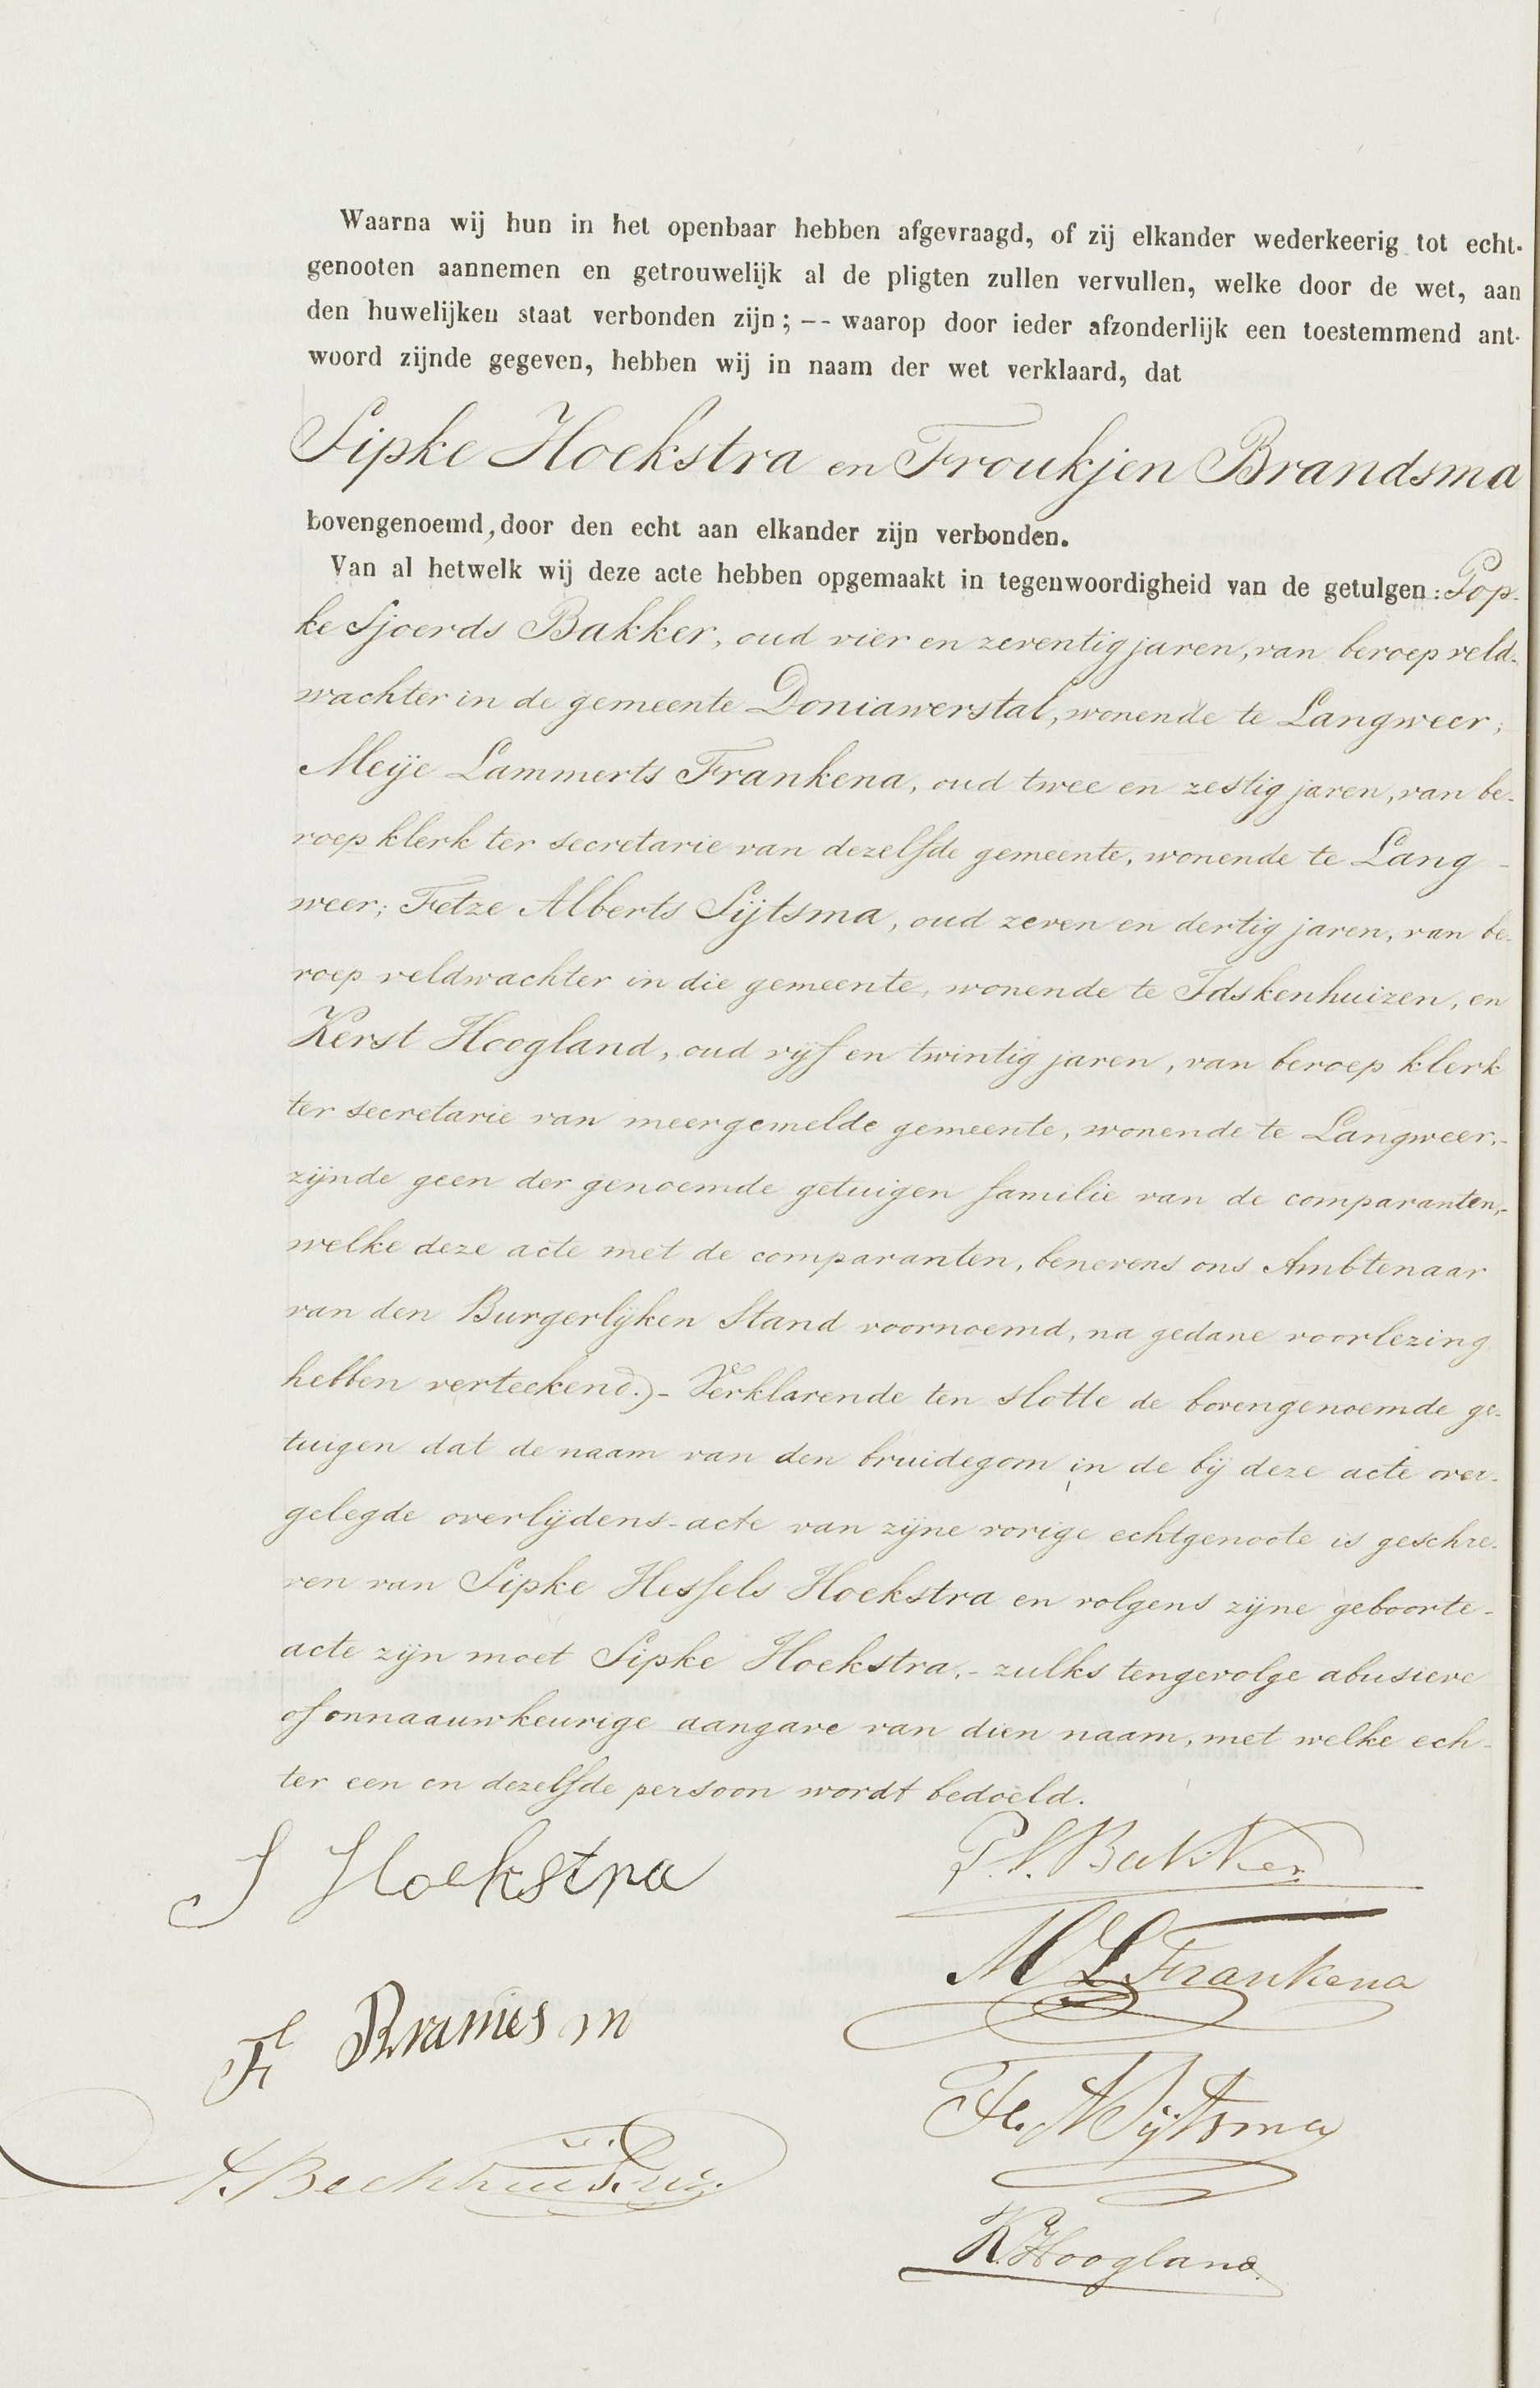 Waarna wij hun in het openbaar hebben afgevraagd, of zij elkander wederkeerig tot echt-
genooten aannemen en getrouwelijk al de pligten zullen vervullen, welke door de wet, aan
den huwelijken staat verbonden zijn; -- waarop door ieder afzonderlijk een toestemmend ant-
woord zijnde gegeven, hebben wij in naam der wet verklaard, dat
Sipke Hoekstra en Froukjen Brandsma
bovengenoemd, door den echt aan elkander zijn verbonden.
Van al hetwelk wij deze acte hebben opgemaakt in tegenwoordigheid van de getuigen: Pop-
ke Sjoerds Bakker, oud vier en zeventig jaren, van beroep veld-
wachter in de gemeente Doniawerstal, wonende te Langweer;
Meije Lammerts Frankena, oud twee en zestig jaren, van be-
roep klerk ter secretarie van dezelfde gemeente, wonende te Lang-
weer; Fetze Alberts Sijtsma, oud zeven en dertig jaren, van be-
roep veldwachter in die gemeente, wonende te Idskenhuizen, en
Kerst Hoogland, oud vijf en twintig jaren, van beroep klerk
ter secretarie van meergemelde gemeente, wonende te Langweer,-
zijnde geen der genoemde getuigen familie van de comparanten,-
welke deze acte met de comparanten, benevens ons Ambtenaar
van den Burgerlijken Stand voornoemd, na gedane voorlezing
hebben verteekend.)- Verklarende ten slotte de bovengenoemde ge-
tuigen dat de naam van den bruidegom in de bij deze acte over-
gelegde overlijdens-acte van zijne vorige echtgenoote is geschre-
ven van Sipke Hessels Hoekstra en volgens zijne geboorte-
acte zijn moet Sipke Hoekstra,- zulks tengevolge abusieve
of onnaauwkeurige aangave van dien naam, met welke ech-
ter een en dezelfde persoon wordt bedoeld.
S Hoekstra
P. S. Bakker
M L Frankena
F
F. A Sijtsma
K. Hoogland